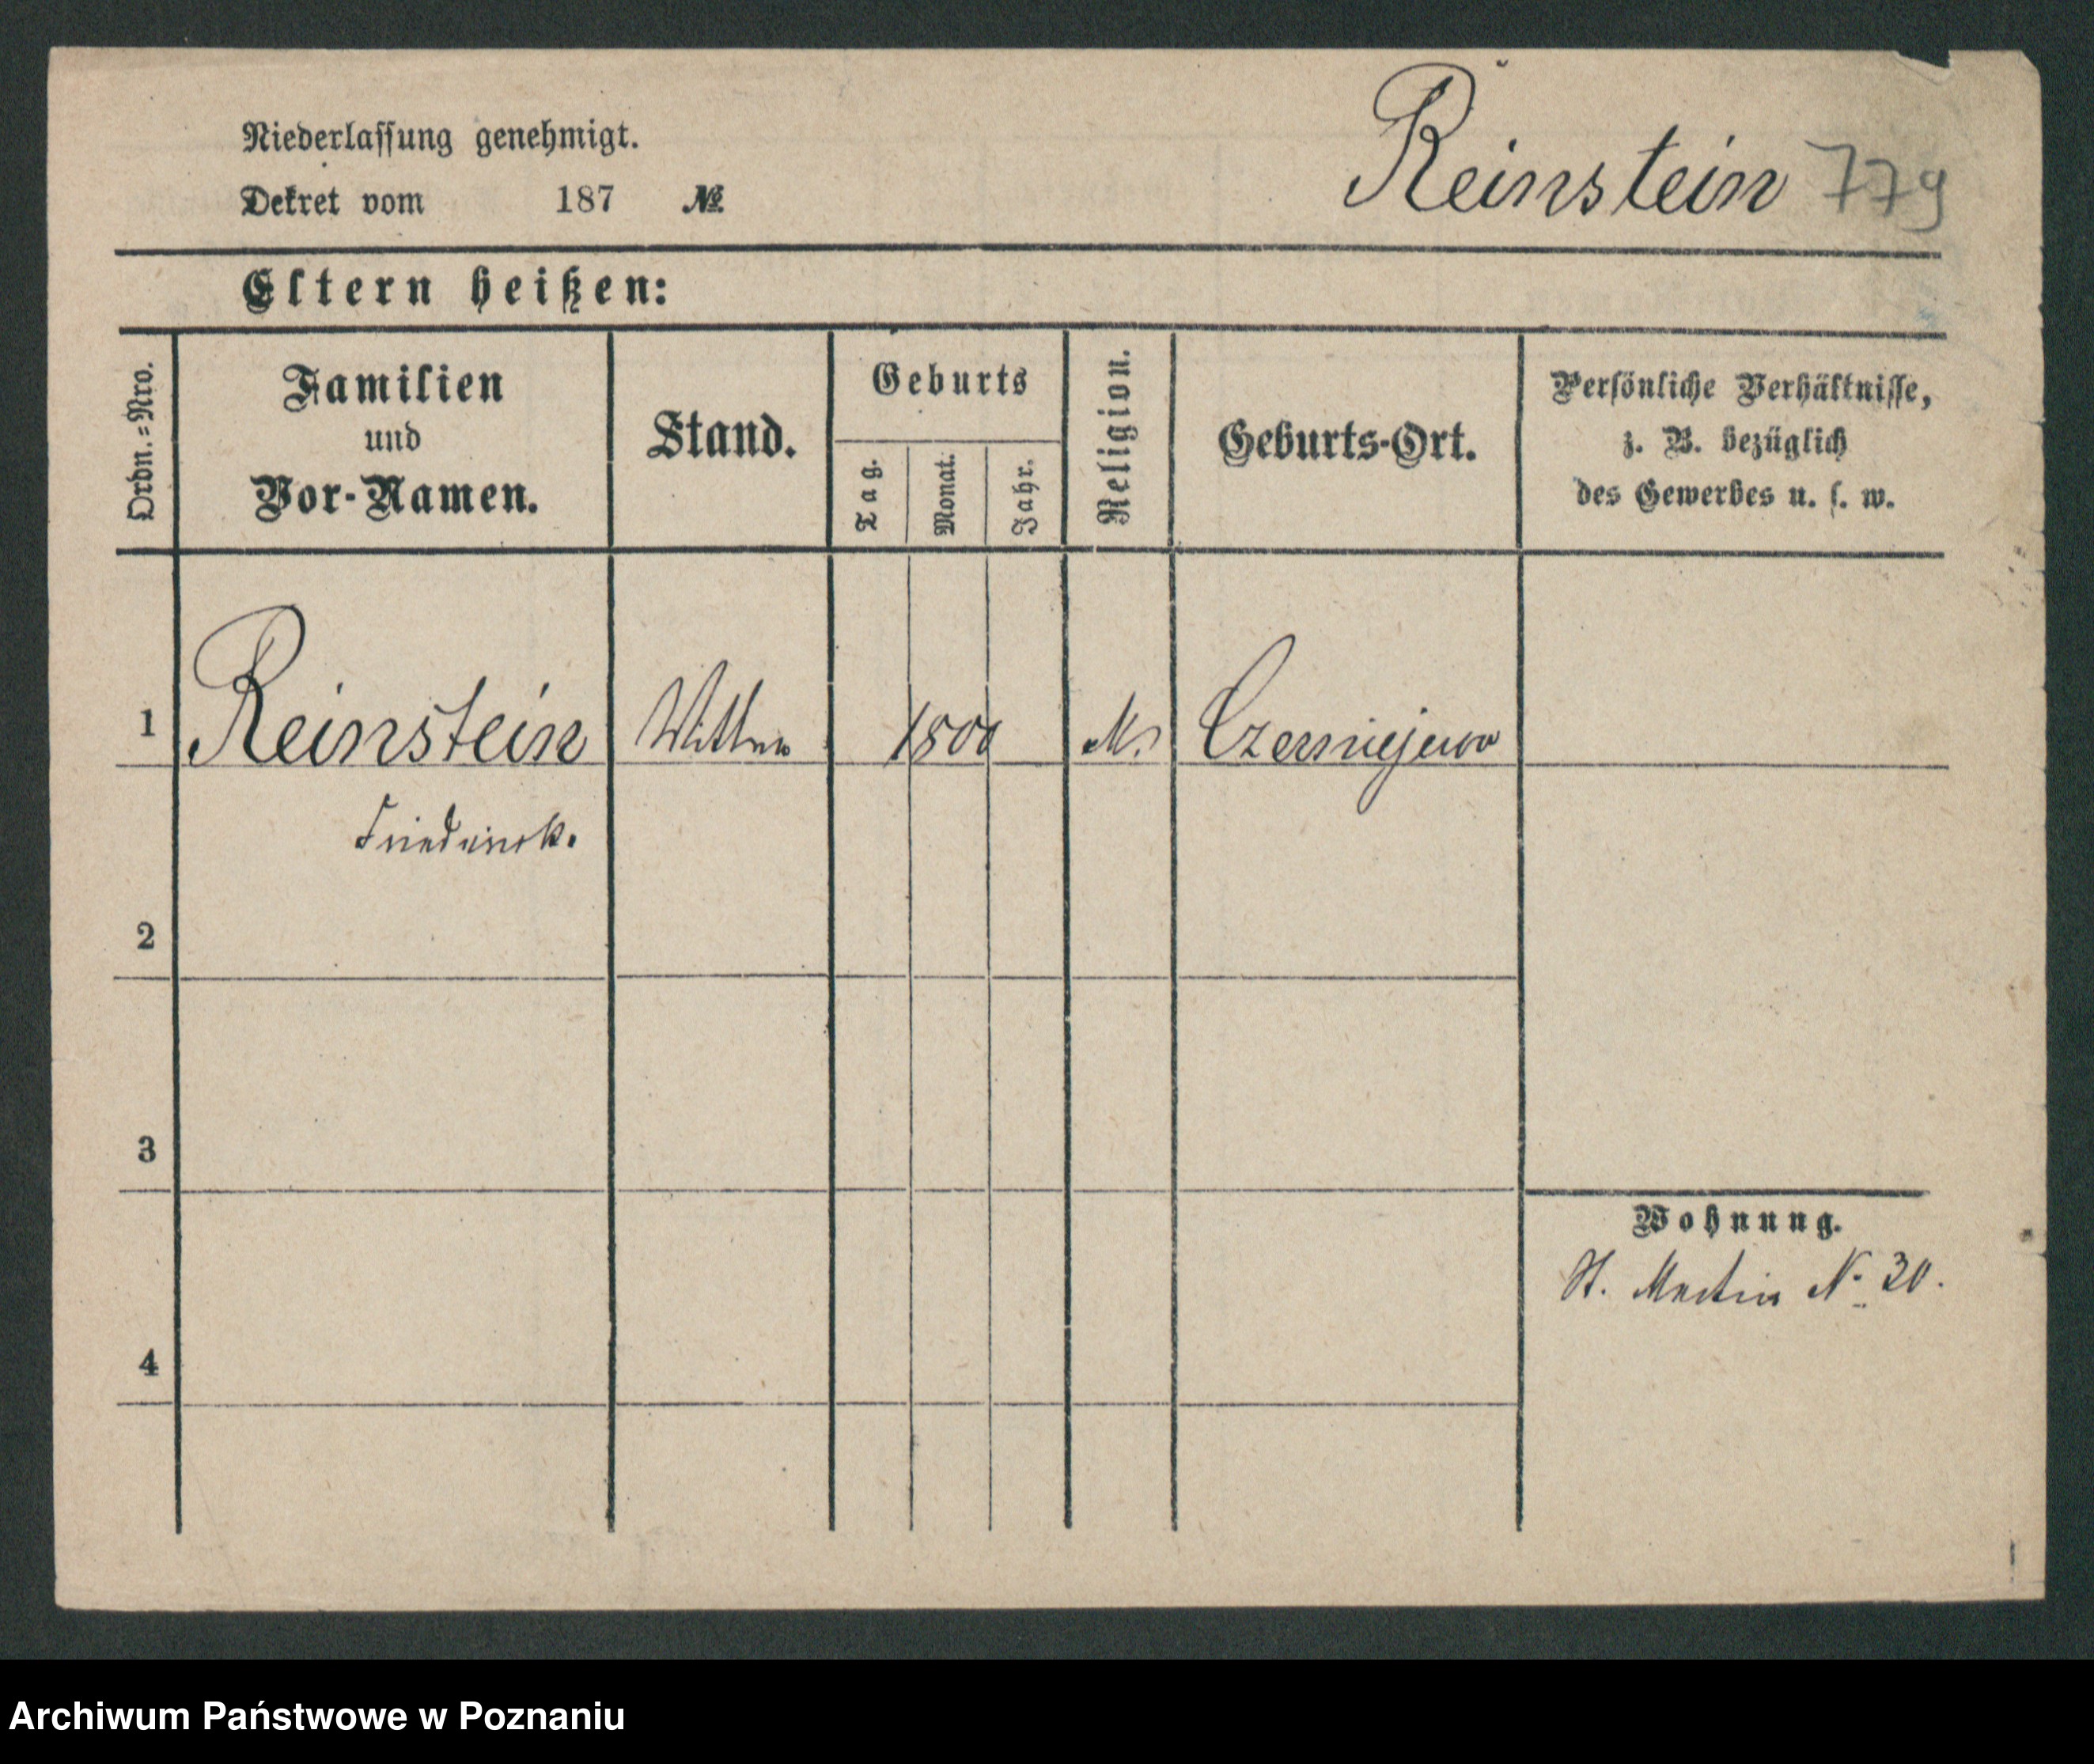 Niederlassung genehmigt.
Dekret vom 187 №
Reinstein 779
Eltern heißen:
Ordn.=Nro.
Familien
und
Vor-Namen.
Stand.
Geburts
Tag.
Monat.
Jahr.
Religion.
Geburts-Ort.
Persönliche Verhältnisse,
z. B. bezüglich
des Gewerbes u. s. w.
1 Reinstein Wittwe 1800 M. Czerniejewo
2
3
4
Wohnung.
St. Martin № 30.
Archiwum Państwowe w Poznaniu